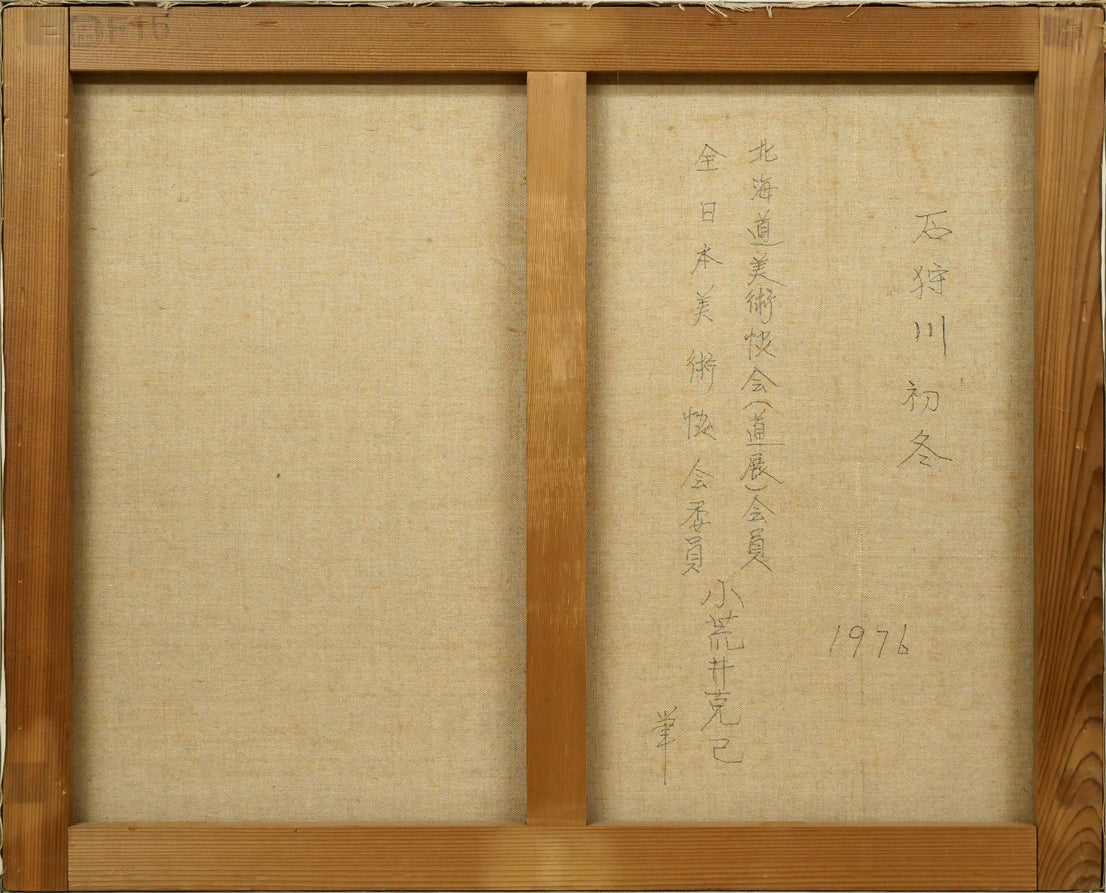 石狩川 初冬
1976
北海道美術協会(道展)会員
全日本美術協会委員
小荒井克己
筆
F10